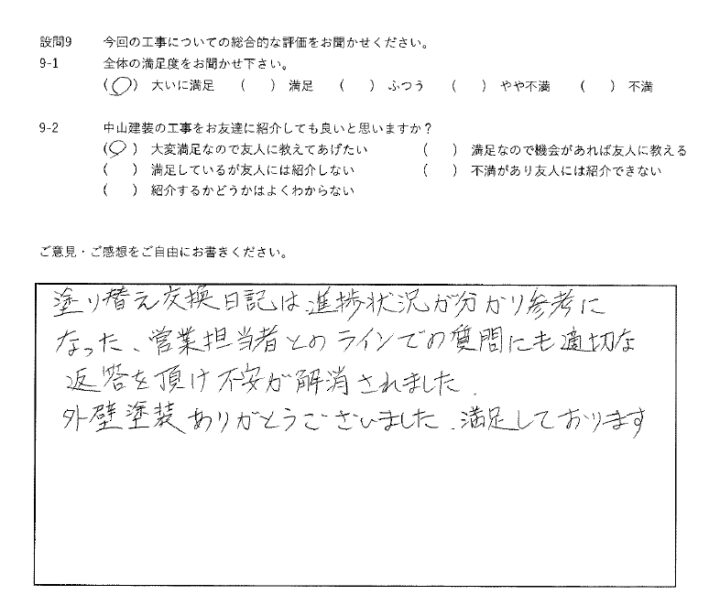 設問9 今回の工事についての総合的な評価をお聞かせください。
9-1 全体の満足度をお聞かせ下さい。
(○) 大いに満足 ( ) 満足 ( ) ふつう ( ) やや不満 ( ) 不満
9-2 中山建装の工事をお友達に紹介しても良いと思いますか？
(○) 大変満足なので友人に教えてあげたい ( ) 満足なので機会があれば友人に教える
( ) 満足しているが友人には紹介しない ( ) 不満があり友人には紹介できない
( ) 紹介するかどうかはよくわからない
ご意見・ご感想をご自由にお書きください。
塗り替え交換日記は、進捗状況が分かり参考に
なった、営業担当者とのラインでの質問にも適切な
返答を頂け不安が解消されました.
外壁塗装ありがとうございました.満足しております